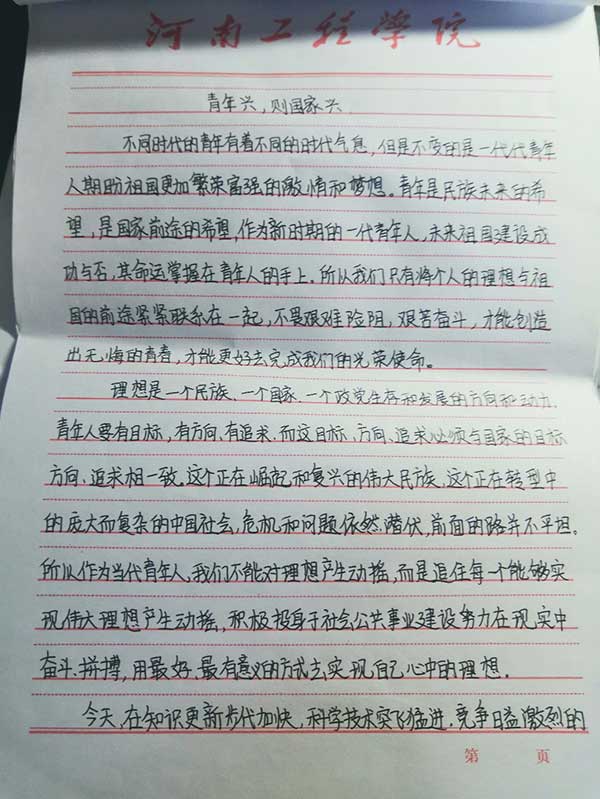 河南工程学院
青年兴，则国家兴
不同时代的青年有着不同的时代气息，但是不变的是一代代青年
人期盼祖国更加繁荣富强的激情和梦想。青年是民族未来的希
望，是国家前途的希望，作为新时期的一代青年人，未来祖国建设成
功与否，其命运掌握在青年人的手上。所以我们只有将个人的理想与祖
国的前途紧紧联系在一起，不畏艰难险阻，艰苦奋斗，才能创造
出无悔的青春，才能更好去完成我们的光荣使命。
理想是一个民族、一个国家、一个政党生存和发展的方向和动力，
青年人要有目标，有方向、有追求。而这目标、方向、追求必须与国家的目标
方向、追求相一致。这个正在崛起和复兴的伟大民族，这个正在转型中
的庞大而复杂的中国社会，危机和问题依然潜伏，前面的路并不平坦。
所以作为当代青年人，我们不能对理想产生动摇，而是追住每一个能够实
现伟大理想产生动摇，积极投身于社会公共事业建设努力在现实中
奋斗、拼搏，用最好、最有意义的方式去实现自己心中的理想。
今天，在知识更新步代加快，科学技术突飞猛进，竞争日益激烈的
第 页